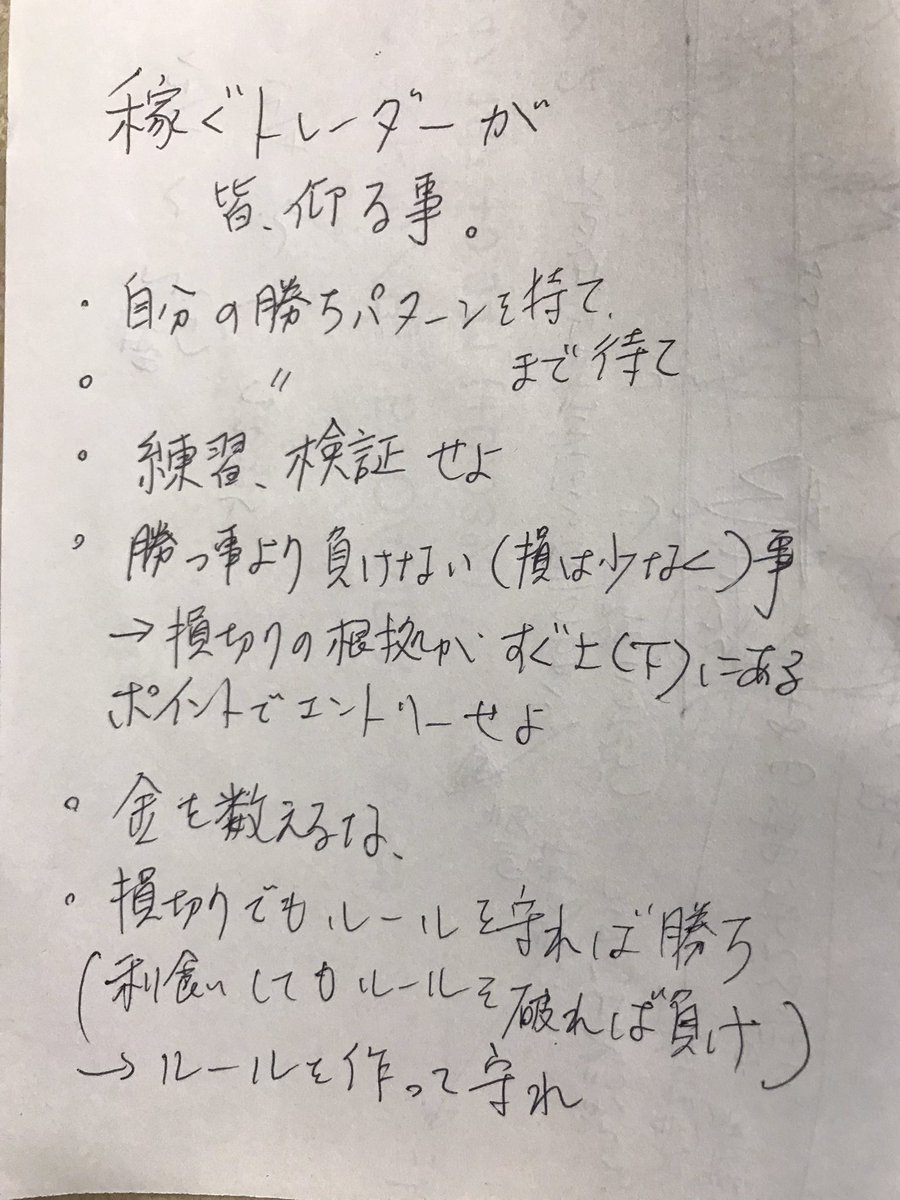 稼ぐトレーダーが
皆、仰る事。
・自分の勝ちパターンを持て、
。 〃 まで待て
・練習、検証せよ
・勝つ事より負けない(損は少なく)事
→損切りの根拠がすぐ上(下)にある
ポイントでエントリーせよ
。金を数えるな、
・損切りでもルールを守れば勝ち
(利食いしてもルールを破れば負け)
→ルールを作って守れ